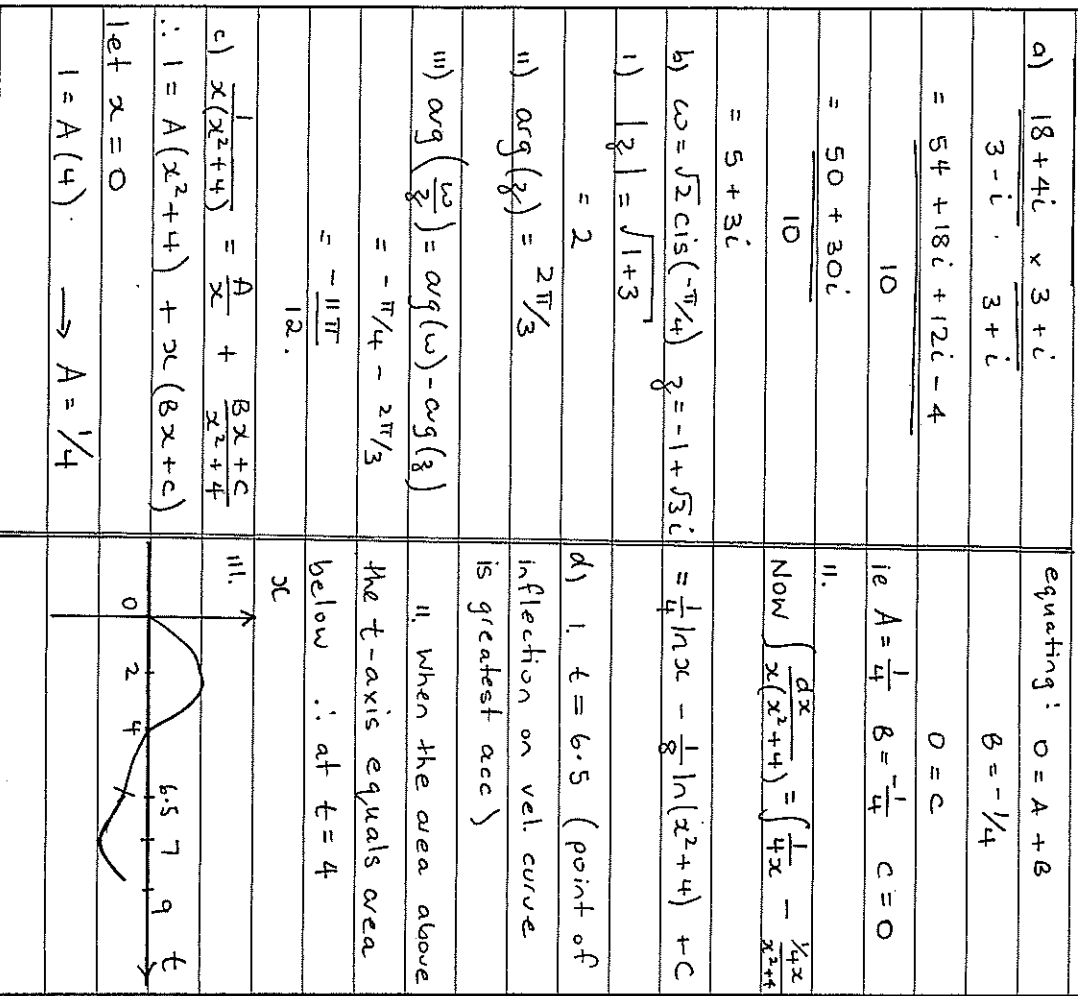 a) 18+4i / 3-i × 3+i / 3+i
= 54 + 18i + 12i - 4 / 10
= 50 + 30i / 10
= 5 + 3i
b) ω = √2 cis(-π/4) z = -1 + √3i
i) |z| = √1+3
= 2
ii) arg(z) = 2π/3
iii) arg(ω/z) = arg(ω) - arg(z)
= -π/4 - 2π/3
= -11π/12.
c) 1/x(x²+4) = A/x + Bx+C/x²+4
∴ 1 = A(x²+4) + x(Bx+C)
let x = 0
1 = A(4). → A = 1/4
equating: 0 = A + B
B = -1/4
0 = C
ie A = 1/4 B = -1/4 C = 0
ii.
Now ∫ dx/x(x²+4) = ∫ 1/4x - 1/4x/x²+4
= 1/4 ln x - 1/8 ln(x²+4) + C
d) i. t = 6.5 (point of
inflection on vel. curve
is greatest acc)
ii. when the area above
the t-axis equals area
below ∴ at t = 4
x
iii.
0 2 4 6.5 7 9 t